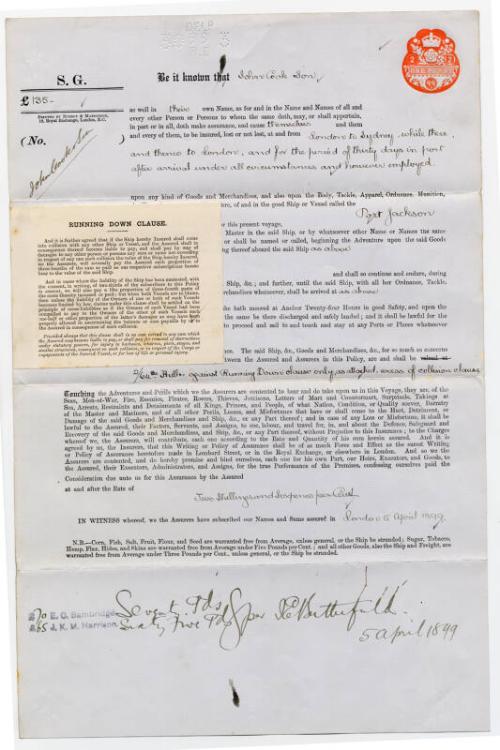 S. G.
£ 135.-
PRINTED BY
Royal Exchange, London, E.C.
(No. )
John Cook & Son
Be it known that John Cook & Son,
as well in their own Name, as for and in the Name and Names of all and
every other Person or Persons to whom the same doth, may, or shall appertain,
in part or in all, doth make assurance, and cause themselves and them
and every of them, to be insured, lost or not lost, at and from London to Sydney, while there
and thence to London, and for the period of thirty days in port
after arrival under all circumstances and however employed.
upon any kind of Goods and Merchandises, and also upon the Body, Tackle, Apparel, Ordnance, Munition,
are, of and in the good Ship or Vessel called the
Port Jackson
r this present voyage,
Master in the said Ship, or by whatsoever other Name or Names the same
or shall be named or called, beginning the Adventure upon the said Goods
ing thereof aboard the said Ship as above
and shall so continue and endure, during
Ship, &c.; and further, until the said Ship, with all her Ordnance, Tackle,
rchandises whatsoever, shall be arrived at as above
he hath moored at Anchor Twenty-four Hours in good Safety, and upon the
the same be there discharged and safely landed; and it shall be lawful for the
to proceed and sail to and touch and stay at any Ports or Places whatsoever
ce. The said Ship, &c., Goods and Merchandises, &c., for so much as concerns
tween the Assured and Assurers in this Policy, are and shall be valued at
RUNNING DOWN CLAUSE.
And it is further agreed that if the Ship hereby Insured shall come
into collision with any other Ship or Vessel, and the Assured shall in
consequence thereof become liable to pay, and shall pay by way of
damages to any other person or persons any sum or sums not exceeding
in respect of any one such collision the value of the Ship hereby Insured,
we the Assurers, will severally pay the Assured such proportion of
three-fourths of the sum so paid as our respective subscriptions hereto
bear to the value of the said Ship.
And in cases where the liability of the Ship has been contested,
with the consent, in writing, of two-thirds of the subscribers to this Policy
in amount, we will also pay a like proportion of three-fourth parts of
the costs thereby incurred or paid; but when both vessels are to blame,
then unless the liability of the Owners of one or both of such Vessels
becomes limited by law, claims under this clause shall be settled on the
principle of cross-liabilities as if the Owners of each Vessel had been
compelled to pay to the Owners of the other of such Vessels such
one-half or other proportion of the latter's damages as may have been
properly allowed in ascertaining the balance or sum payable by or to
the Assured in consequence of such collision.
Provided always that this clause shall in no case extend to any sum which
the Assured may become liable to pay, or shall pay for removal of obstructions
under statutory powers, for injury to harbours, wharves, piers, stages, and
similar structures, consequent on such collision, or in respect of the cargo or
engagements of the Insured Vessel, or for loss of life or personal injury.
against Running Down clause only, as attached, excess of collision clause
Touching the Adventures and Perils which we the Assurers are contented to bear and do take upon us in this Voyage, they are, of the
Seas, Men-of-War, Fire, Enemies, Pirates, Rovers, Thieves, Jettisons, Letters of Mart and Countermart, Surprisals, Takings at
Sea, Arrests, Restraints and Detainments of all Kings, Princes, and People, of what Nation, Condition, or Quality soever, Barratry
of the Master and Mariners, and of all other Perils, Losses, and Misfortunes that have or shall come to the Hurt, Detriment, or
Damage of the said Goods and Merchandises and Ship, &c., or any Part thereof; and in case of any Loss or Misfortune, it shall be
lawful to the Assured, their Factors, Servants, and Assigns, to sue, labour, and travel for, in, and about the Defence, Safeguard and
Recovery of the said Goods and Merchandises, and Ship, &c., or any Part thereof, without Prejudice to this Insurance; to the Charges
whereof we, the Assurers, will contribute, each one according to the Rate and Quantity of his sum herein assured. And it is
agreed by us, the Insurers, that this Writing or Policy of Assurance shall be of as much Force and Effect as the surest Writing
or Policy of Assurance heretofore made in Lombard Street, or in the Royal Exchange, or elsewhere in London. And so we the
Assurers are contented, and do hereby promise and bind ourselves, each one for his own Part, our Heirs, Executors, and Goods, to
the Assured, their Executors, Administrators, and Assigns, for the true Performance of the Premises, confessing ourselves paid the
Consideration due unto us for this Assurance by the Assured
at and after the Rate of
Two Shillings and Sixpence per Cent.
IN WITNESS whereof, we the Assurers have subscribed our Names and Sums assured in London 5 April 1899.
N.B.—Corn, Fish, Salt, Fruit, Flour, and Seed are warranted free from Average, unless general, or the Ship be stranded; Sugar, Tobacco,
Hemp, Flax, Hides, and Skins are warranted free from Average under Five Pounds per Cent.; and all other Goods, also the Ship and Freight, are
warranted free from Average under Three Pounds per Cent., unless general, or the Ship be stranded.
£70 E. G. Bambridge Seventy Pds
£65 J. K. M. Harrison Sixty Five Pds
per J E Butterfield.
5 April 1899